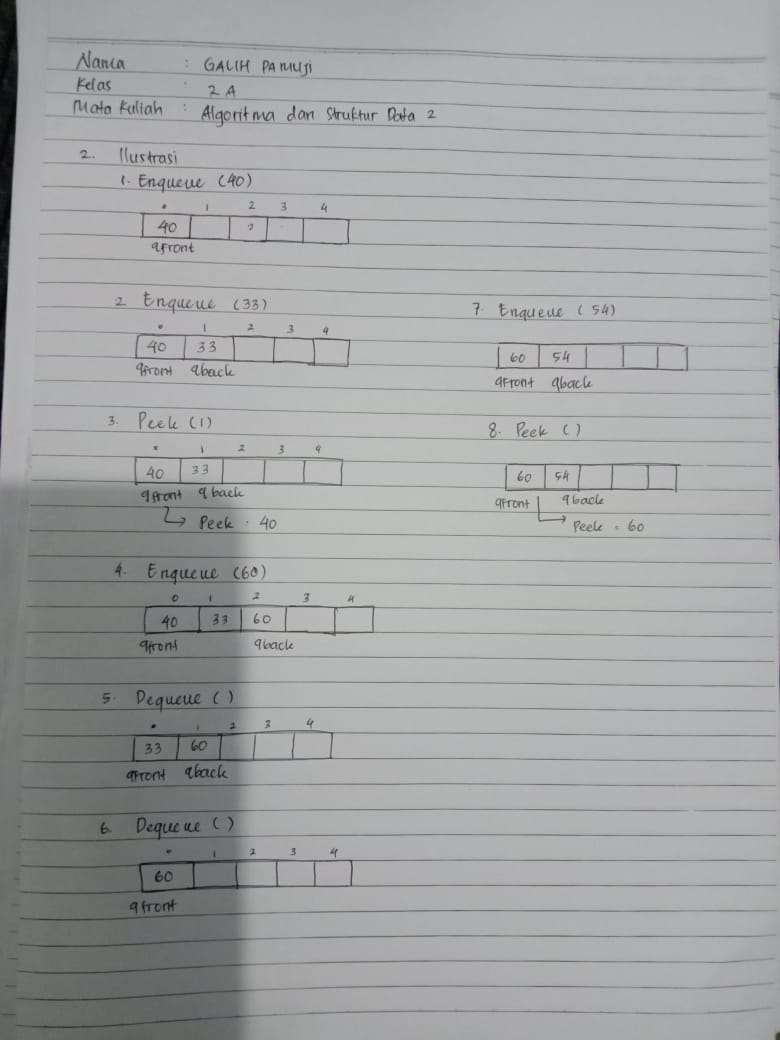 Nama : GALIH PAMUJI
Kelas : 2 A
Mata Kuliah : Algoritma dan Struktur Data 2
2. Ilustrasi
1. Enqueue (40)
0 1 2 3 4
40
qfront
2 Enqueue (33)
0 1 2 3 4
40 33
qfront qback
3. Peek (1)
0 1 2 3 4
40 33
qfront qback
Peek : 40
4. Enqueue (60)
0 1 2 3 4
40 33 60
qfront qback
5. Dequeue ( )
0 1 2 3 4
33 60
qfront qback
6. Dequeue ( )
0 1 2 3 4
60
qfront
7. Enqueue ( 54)
60 54
qfront qback
8. Peek ( )
60 54
qfront qback
Peek = 60